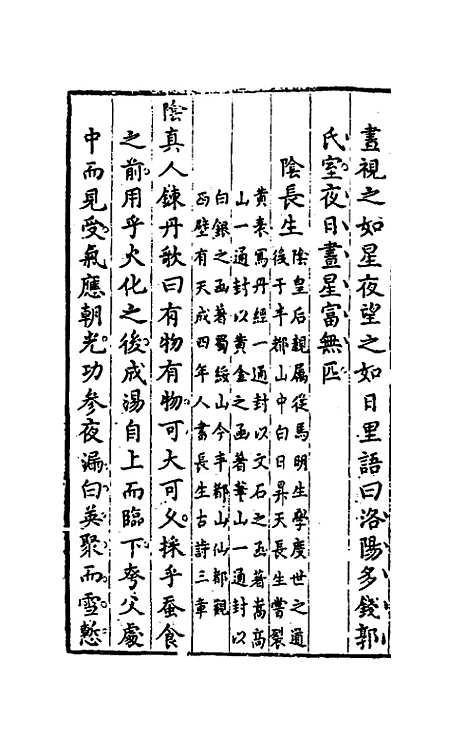 晝視之如星夜望之如日里語曰洛陽多錢郭
氏室夜日晝星富無匹
陰長生
陰皇后親属從馬明生學度世之道
後于平都山中白日昇天長生嘗裂
黄素寫丹經一通封以文石之函著嵩高
山一通封以黄金之函著華山一通封以
白銀之函著蜀綏山今平都山仙都觀
西壁有天成四年人書長生古詩三章
陰真人鍊丹歌曰有物有物可大可久採乎蚕食
之前用乎火化之後成湯自上而臨下夸父處
中而見受氣應朝光功參夜漏白英聚而雪慙